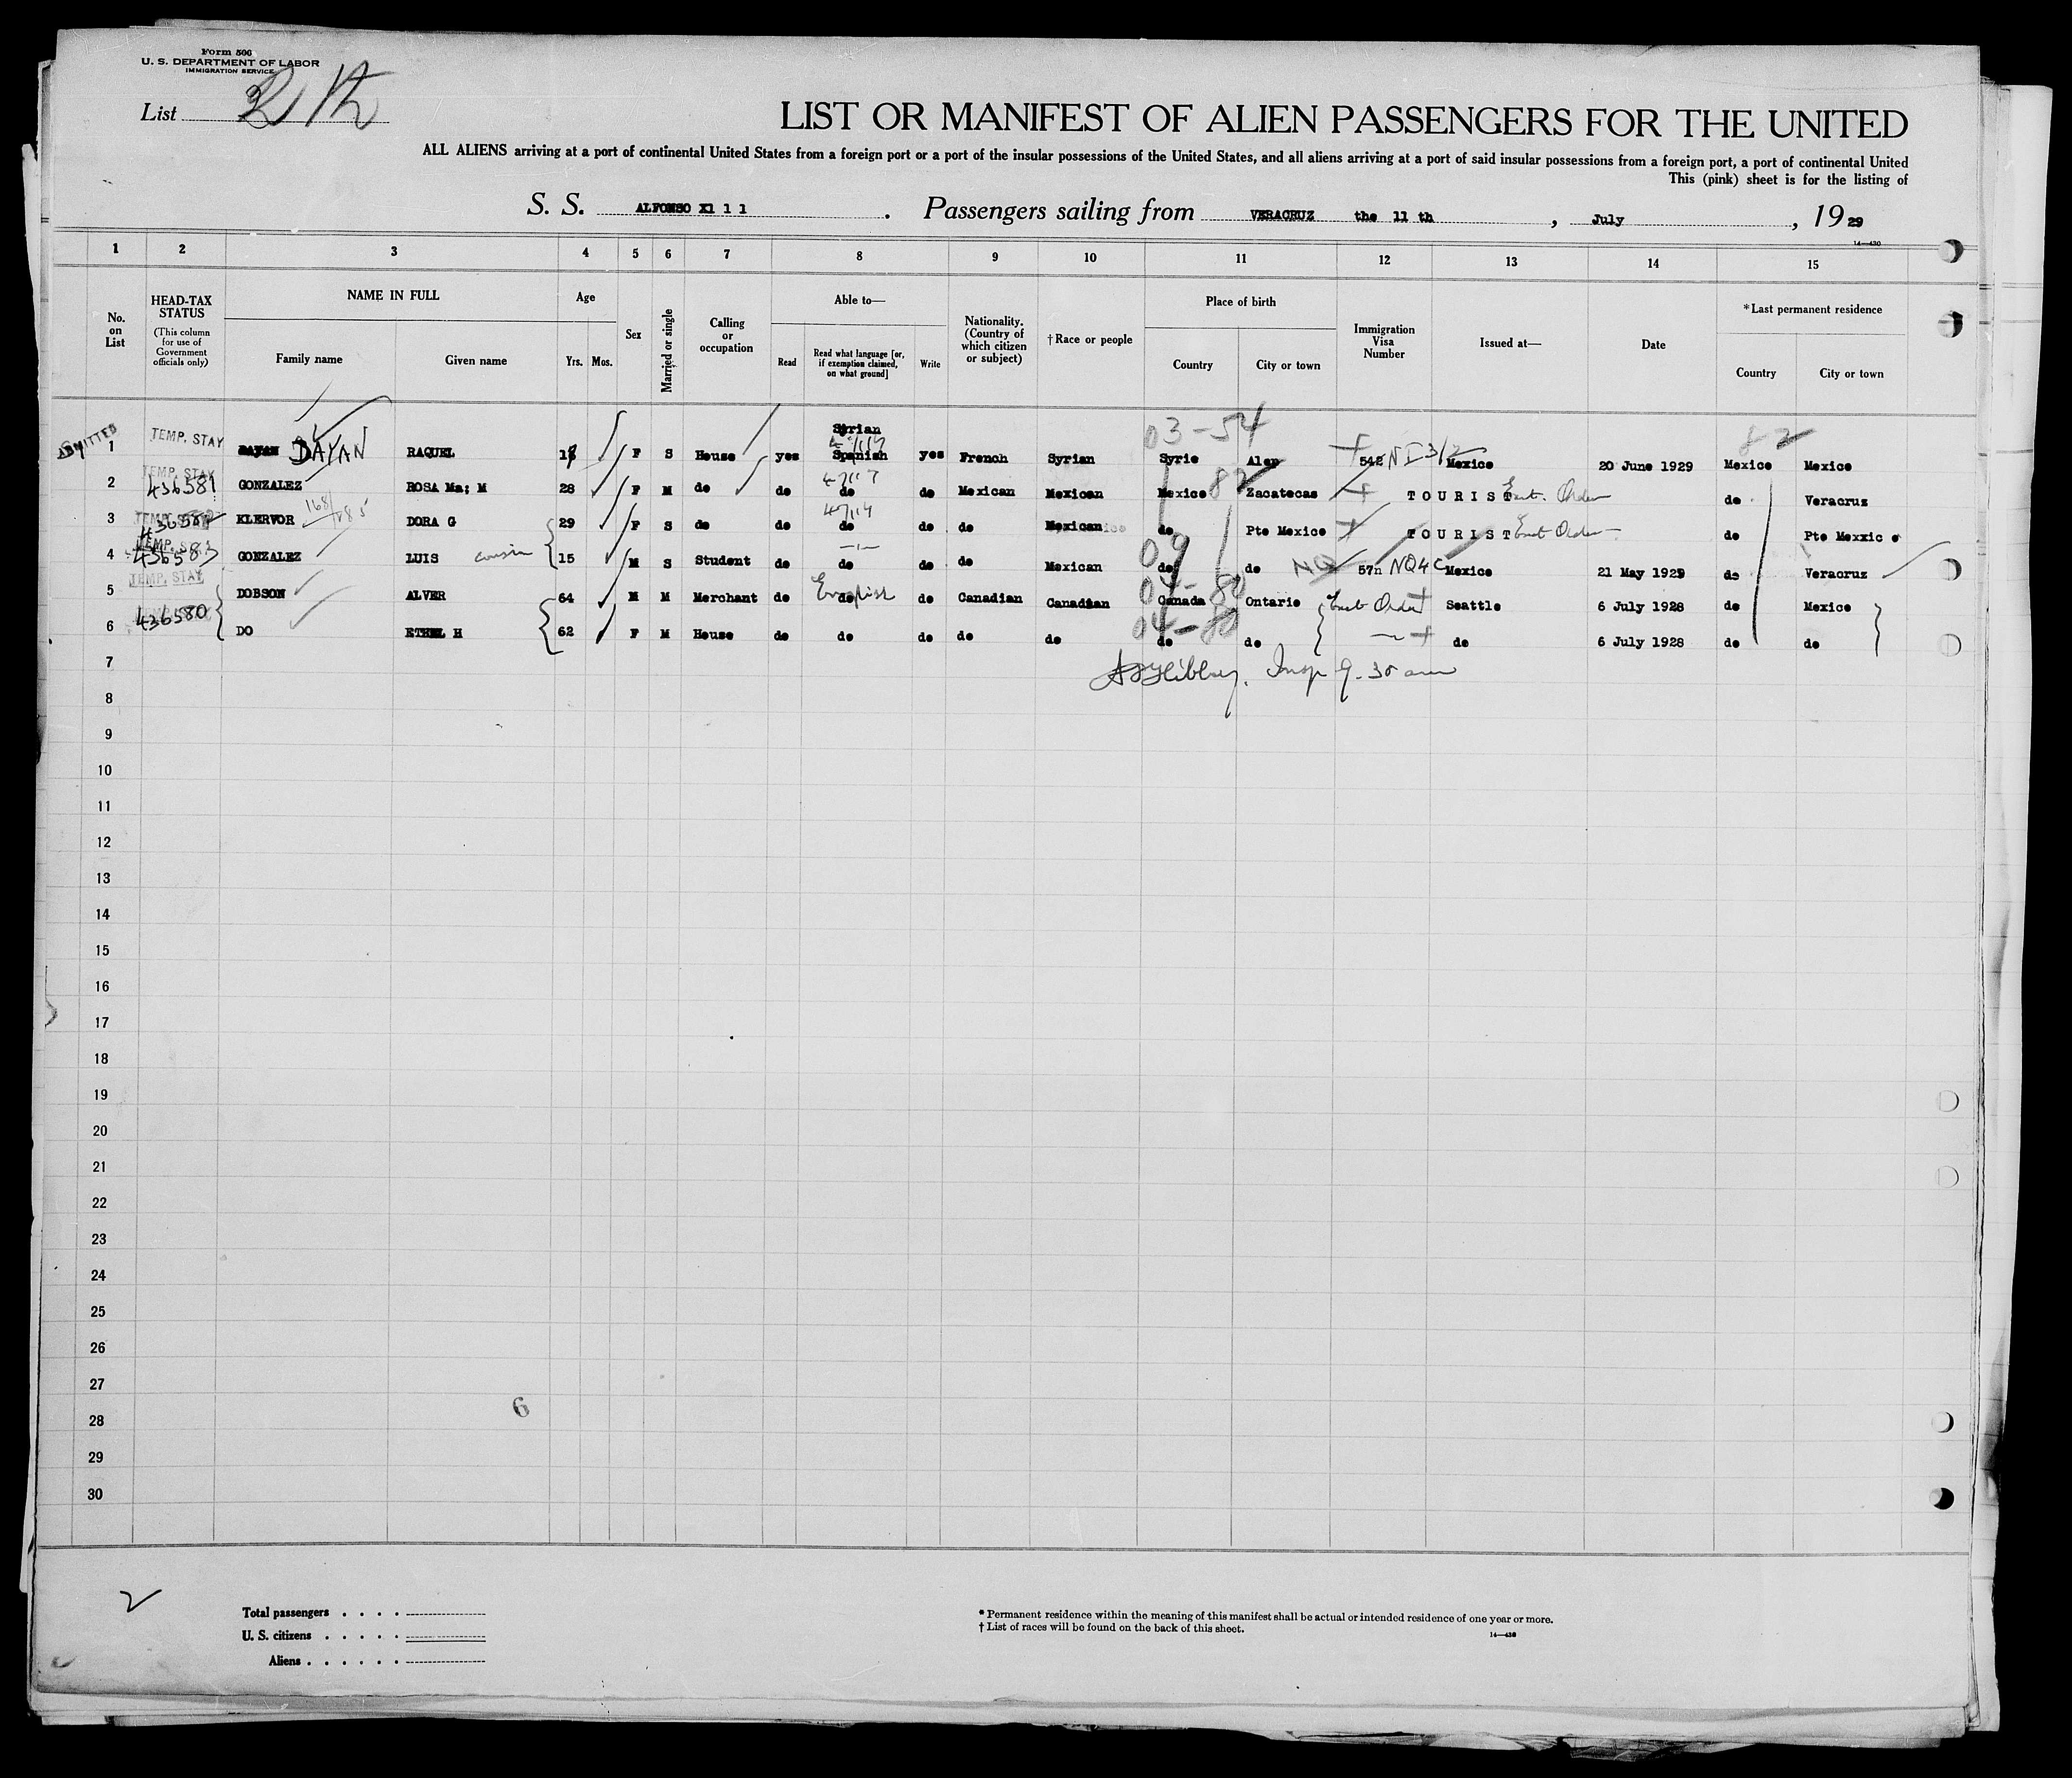 Form 500
U. S. DEPARTMENT OF LABOR
IMMIGRATION SERVICE
List
LIST OR MANIFEST OF ALIEN PASSENGERS FOR THE UNITED
ALL ALIENS arriving at a port of continental United States from a foreign port or a port of the insular possessions of the United States, and all aliens arriving at a port of said insular possessions from a foreign port, a port of continental United
This (pink) sheet is for the listing of
S. S. ALFONSO X1 1 1 . Passengers sailing from VERACRUZ the 11 th , July , 19 29
14—430
1 2 3 4 5 6 7 8 9 10 11 12 13 14 15
No. on List
HEAD-TAX STATUS
(This column for use of Government officials only)
NAME IN FULL
Family name Given name
Age
Yrs. Mos.
Sex
Married or single
Calling or occupation
Able to—
Read Read what language [or, if exemption claimed, on what ground] Write
Nationality. (Country of which citizen or subject)
†Race or people
Place of birth
Country City or town
Immigration Visa Number
Issued at—
Date
*Last permanent residence
Country City or town
03-54
Syrian
ADMITTED 1 TEMP. STAY BAYAN RAQUEL F S House yes Spanish yes French Syrian Syrie Alep 542 NI 3/2 Mexico 20 June 1929 Mexico Mexico
TEMP. STAY
2 436581 GONZALEZ ROSA Ma; M 28 F M do do do do Mexican Mexican Mexico 82 Zacatecas TOURIST do Veracruz
3 KLERVOR 168/ DORA G 29 F S do do do do do Mexican do Pto Mexico TOURIST do Pto Mexxic o
4 436583 GONZALEZ LUIS cousin 15 M S Student do do do do Mexican do do NQ 57n NQ4C Mexico 21 May 1929 do Veracruz
TEMP. STAY
5 DOBSON ALVER 64 M M Merchant do English do Canadian Canadian Canada Ontario Seattle 6 July 1928 do Mexico
6 436580 DO ETHEL H 62 F M House do do do do do do do do 6 July 1928 do do
Insp 9.30 am
7
8
9
10
11
12
13
14
15
16
17
18
19
20
21
22
23
24
25
26
27
6
28
29
30
Total passengers . . . .
U. S. citizens . . . . .
Aliens . . . . . .
* Permanent residence within the meaning of this manifest shall be actual or intended residence of one year or more.
† List of races will be found on the back of this sheet.
14—430